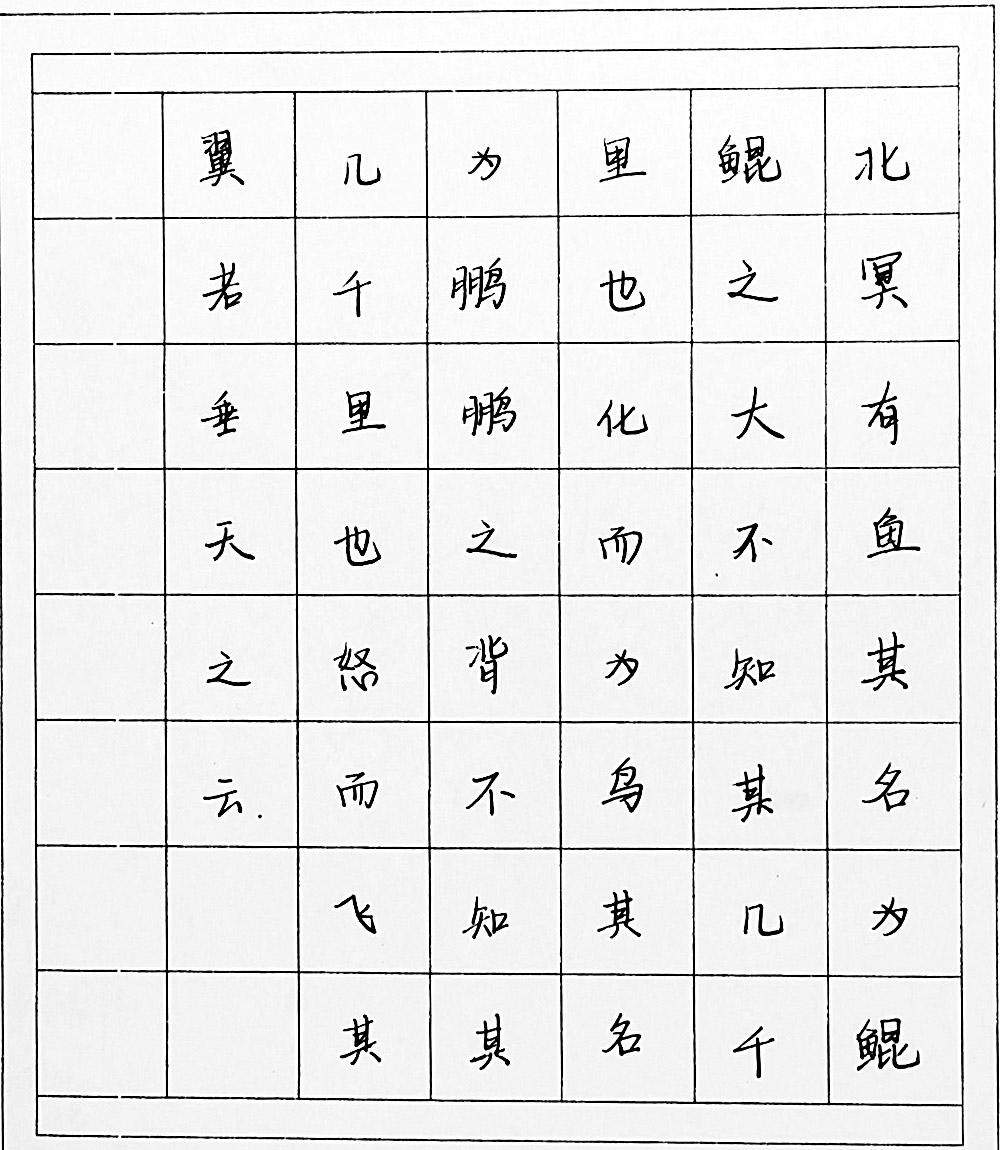 北冥有鱼其名为鲲
鲲之大不知其几千
里也化而为鸟其名
为鹏鹏之背不知其
几千里也怒而飞其
翼若垂天之云